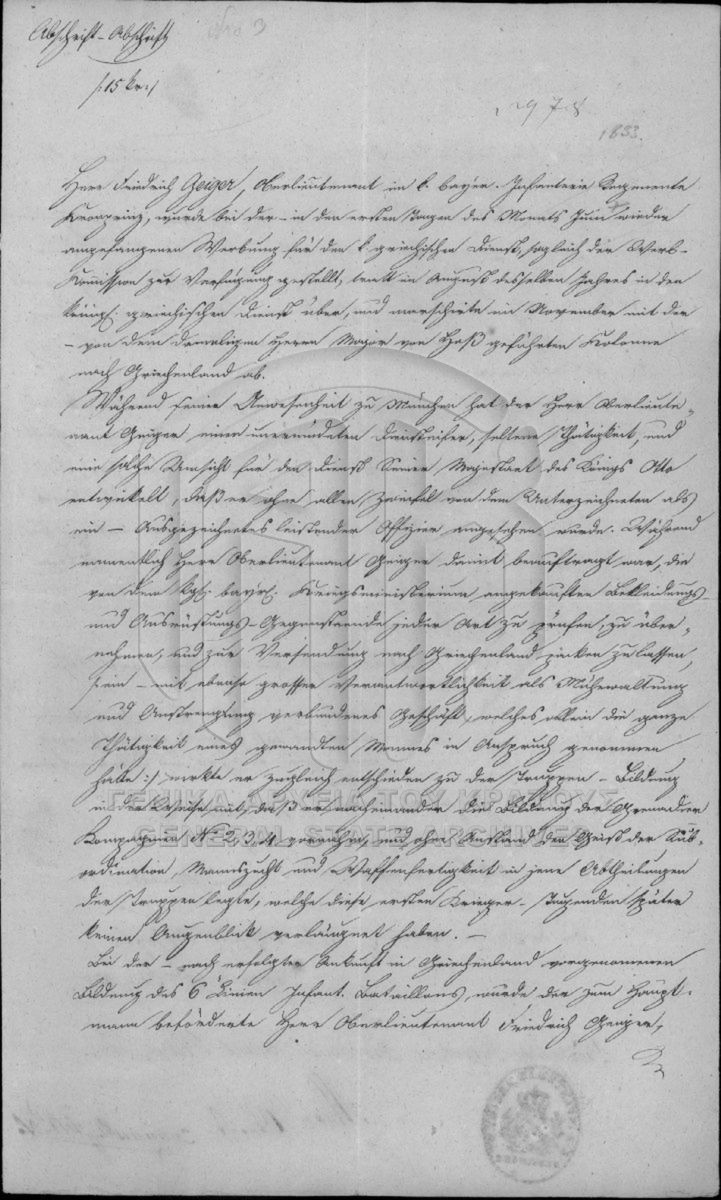 Abschrift-Abschrift
No 3
/:15 kr:/
2978
1833.
Herr Friedrich Geiger, Oberlieutenant im k. bayer. Infanterie Regimente
Kronprinz, wurde bei der – in den ersten Tagen des Monats Juni wieder
angefangenen Werbung für den k. griechischen Dienst, sogleich der Werb-
Komission zur Verfügung gestellt, tratt im August desselben Jahres in den
königl. griechischen Dienst über, und marschirte im November mit der
– von dem damaligen Herrn Major von Heß geführten Kolonne
nach Griechenland ab.
Während seiner Anwesenheit zu München hat der Herr Oberlieute-
nant Geiger einen unermüdeten Diensteifer, seltene Thätigkeit, und
eine solche Umsicht für den Dienst Seiner Majestaet des Königs Otto
entwickelt, daß er ohne allen Zweifel von dem Unterzeichneten als
ein – Ausgezeichnetes leistender Offizier angesehen wurde. Während
namentlich Herr Oberlieutenant Geiger damit beauftragt war, die
von dem kgl. bayr. Kriegsministerium angekauften Bekleidungs-
und Ausrüstungs-Gegenstaende jeder Art zu prüfen, zu über-
nehmen, und zur Versendung nach Griechenland packen zu lassen,
/: ein – mit ebenso grosser Verantwortlichkeit als Mühewaltung
und Anstrengung verbundenes Geschäft, welches allein die ganze
Thätigkeit eines gewandten Mannes in Anspruch genommen
hätte :/ wirkte er zugleich entschieden zu der Truppen-Bildung
in der Weise mit, daß er nacheinander die Bildung der Grenadier
Kompagnien No 2, 3, 4 vornahm, und ohne Anstand den Geist der Sub-
ordination, Mannszucht und Waffenfertigkeit in jene Abtheilungen
der Truppen legte, welche diese ersten Krieger-Tugenden später
keinen Augenblick verläugnet haben. –
Bei der – nach erfolgter Ankunft in Griechenland vorgenommenen
Bildung des 6 Linien Infant. Bataillons, wurde der zum Haupt-
mann beförderte Herr Oberlieutenant Friedrich Geiger,
ΓΕΝΙΚΑ ΑΡΧΕΙΑ ΤΟΥ ΚΡΑΤΟΥΣ
GENERAL STATE ARCHIVES